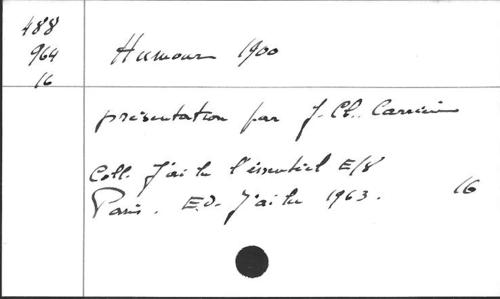 488
964
16
Humour 1900
présentation par J. Cl. Carrière
Coll. J'ai lu l'essentiel E/8
Paris. Ed. J'ai lu 1963. 16